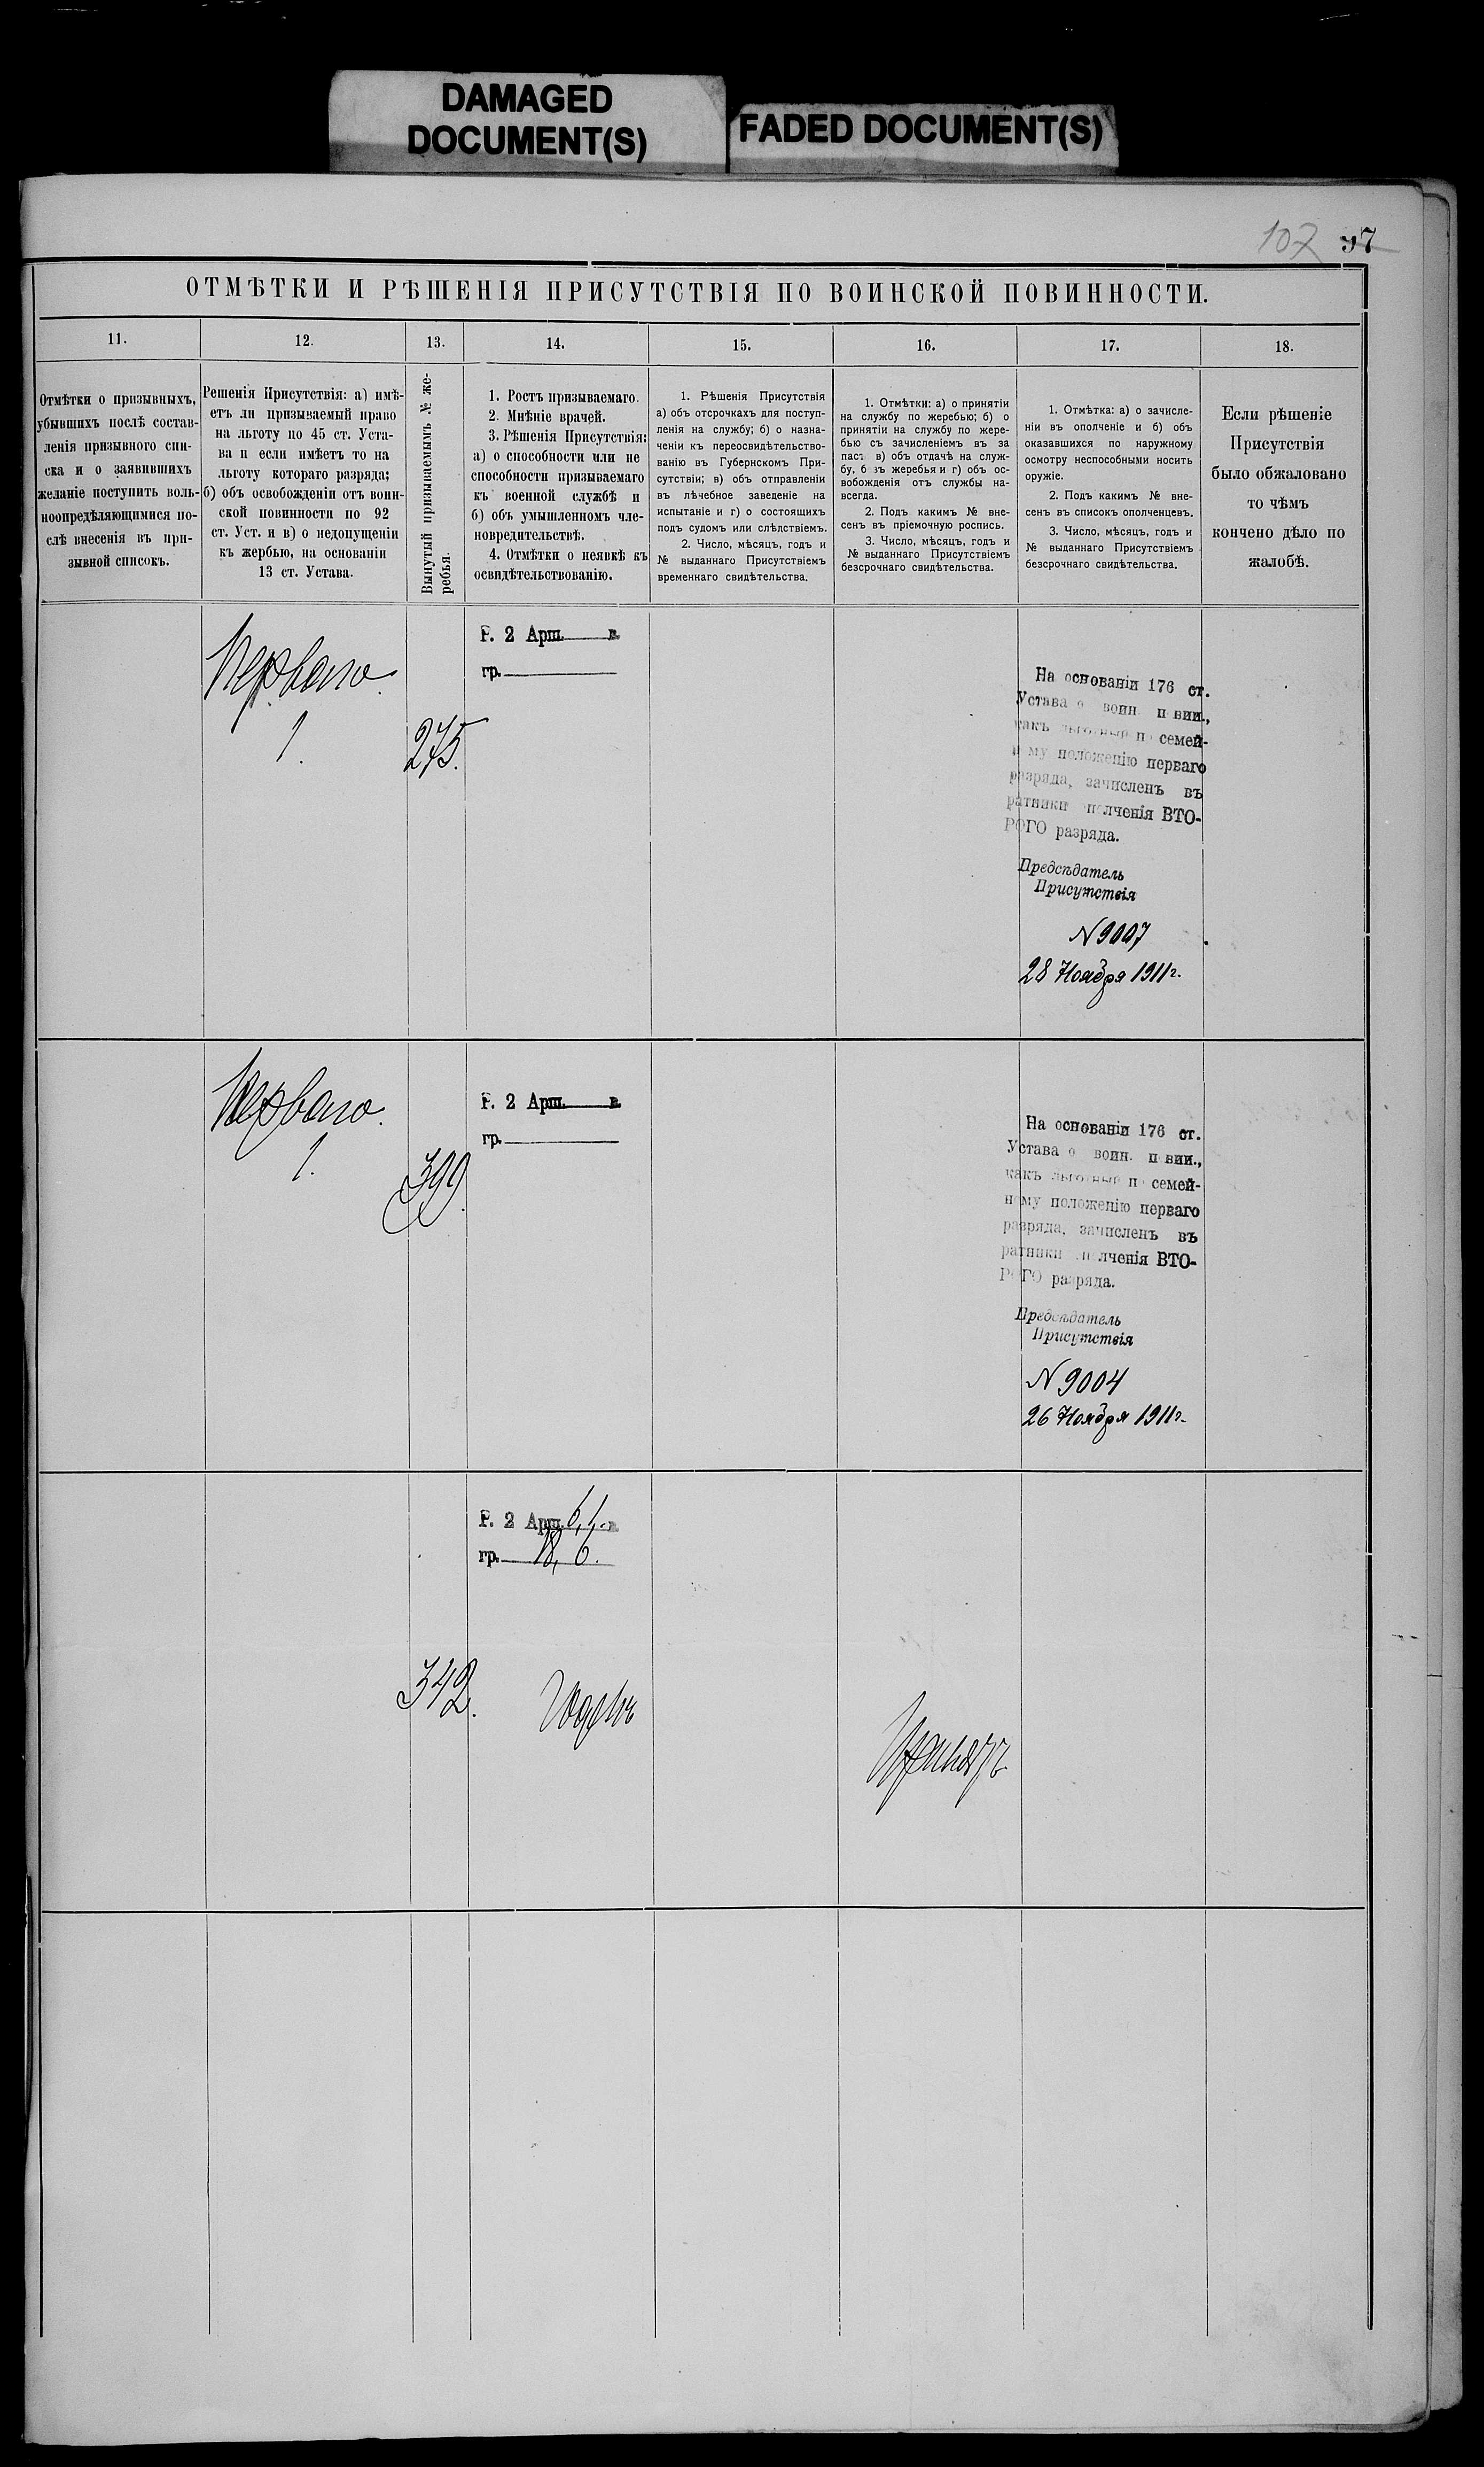 DAMAGED
DOCUMENT(S)
FADED DOCUMENT(S)
107 97
ОТМѢТКИ И РѢШЕНІЯ ПРИСУТСТВІЯ ПО ВОИНСКОЙ ПОВИННОСТИ.
11.
12.
13.
14.
15.
16.
17.
18.
Отмѣтки о призывныхъ,
убывшихъ послѣ состав-
ленія призывного спи-
ска и о заявившихъ
желаніе поступить воль-
ноопредѣляющимися по-
слѣ внесенія въ при-
зывной списокъ.
Решенія Присутствія: а) имѣ-
етъ ли призываемый право
на льготу по 45 ст. Уста-
ва и если имѣетъ то на
льготу котораго разряда;
б) объ освобожденіи отъ воин-
ской повинности по 92
ст. Уст. и в) о недопущеніи
къ жербью, на основаніи
13 ст. Устава.
Вынутый призываемымъ № же-
ребья.
1. Ростъ призываемаго.
2. Мнѣніе врачей.
3. Рѣшенія Присутствія:
а) о способности или не
способности призываемаго
къ военной службѣ и
б) объ умышленномъ чле-
новредительствѣ.
4. Отмѣтки о неявкѣ къ
освидѣтельствованію.
1. Рѣшенія Присутствія
а) объ отсрочкахъ для поступ-
ленія на службу; б) о назна-
ченіи къ переосвидѣтельство-
ванію въ Губернскомъ При-
сутствіи; в) объ отправленіи
въ лѣчебное заведеніе на
испытаніе и г) о состоящихъ
подъ судомъ или слѣдствіемъ.
2. Число, мѣсяцъ, годъ и
№ выданнаго Присутствіемъ
временнаго свидѣтельства.
1. Отмѣтки: а) о принятіи
на службу по жеребью; б) о
принятіи на службу по жере-
бью съ зачисленіемъ въ за
пасъ в) объ отдачѣ на служ-
бу, безъ жеребья и г) объ ос-
вобожденія отъ службы на-
всегда.
2. Подъ какимъ № вне-
сенъ въ пріемочную роспись.
3. Число, мѣсяцъ, годъ и
№ выданнаго Присутствіемъ
безсрочнаго свидѣтельства.
1. Отмѣтка: а) о зачисле-
ніи въ ополченіе и б) объ
оказавшихся по наружному
осмотру неспособными носить
оружіе.
2. Подъ какимъ № вне-
сенъ въ списокъ ополченцевъ.
3. Число, мѣсяцъ, годъ и
№ выданнаго Присутствіемъ
безсрочнаго свидѣтельства.
Если рѣшеніе
Присутствія
было обжаловано
то чѣмъ
кончено дѣло по
жалобѣ.
Перваго
1.
275.
Р. 2 Арш. в.
гр.
На основаніи 176 ст.
Устава о воин. повин.,
какъ льготный по семей-
ному положенію перваго
разряда, зачисленъ въ
ратники ополченія ВТО-
РОГО разряда.
Предсѣдатель
Присутствія
N 9007
28 Ноября 1911 г.
Перваго.
1.
399.
Р. 2 Арш. в.
гр.
На основаніи 176 ст.
Устава о воин. повин.,
какъ льготный по семей-
ному положенію перваго
разряда, зачисленъ въ
ратники ополченія ВТО-
РОГО разряда.
Предсѣдатель
Присутствія
N 9004
26 Ноября 1911 г.
342.
Р. 2 Арш. 6,1. в.
гр. 18,6.
Годенъ
Принятъ